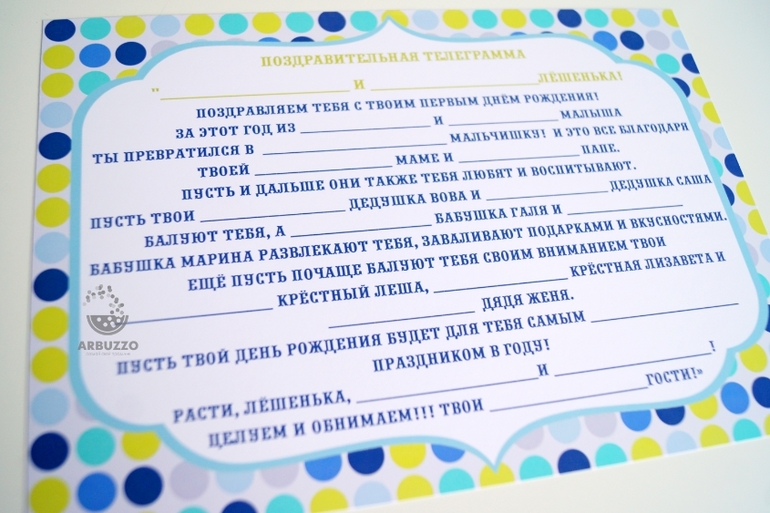 ПОЗДРАВИТЕЛЬНАЯ ТЕЛЕГРАММА
"____________ И ____________ ЛЁШЕНЬКА!
ПОЗДРАВЛЯЕМ ТЕБЯ С ТВОИМ ПЕРВЫМ ДНЁМ РОЖДЕНИЯ!
ЗА ЭТОТ ГОД ИЗ ____________ И ____________ МАЛЫША
ТЫ ПРЕВРАТИЛСЯ В ____________ МАЛЬЧИШКУ! И ЭТО ВСЕ БЛАГОДАРЯ
ТВОЕЙ ____________ МАМЕ И ____________ ПАПЕ.
ПУСТЬ И ДАЛЬШЕ ОНИ ТАКЖЕ ТЕБЯ ЛЮБЯТ И ВОСПИТЫВАЮТ.
ПУСТЬ ТВОИ ____________ ДЕДУШКА ВОВА И ____________ ДЕДУШКА САША
БАЛУЮТ ТЕБЯ, А ____________ БАБУШКА ГАЛЯ И ____________
БАБУШКА МАРИНА РАЗВЛЕКАЮТ ТЕБЯ, ЗАВАЛИВАЮТ ПОДАРКАМИ И ВКУСНОСТЯМИ.
ЕЩЁ ПУСТЬ ПОЧАЩЕ БАЛУЮТ ТЕБЯ СВОИМ ВНИМАНИЕМ ТВОИ
____________ КРЁСТНЫЙ ЛЕША, ____________ КРЁСТНАЯ ЛИЗАВЕТА И
____________ ДЯДЯ ЖЕНЯ.
ПУСТЬ ТВОЙ ДЕНЬ РОЖДЕНИЯ БУДЕТ ДЛЯ ТЕБЯ САМЫМ ____________
ПРАЗДНИКОМ В ГОДУ!
РАСТИ, ЛЁШЕНЬКА, ____________ И ____________!
ЦЕЛУЕМ И ОБНИМАЕМ!!! ТВОИ ____________ ГОСТИ!»
ARBUZZO